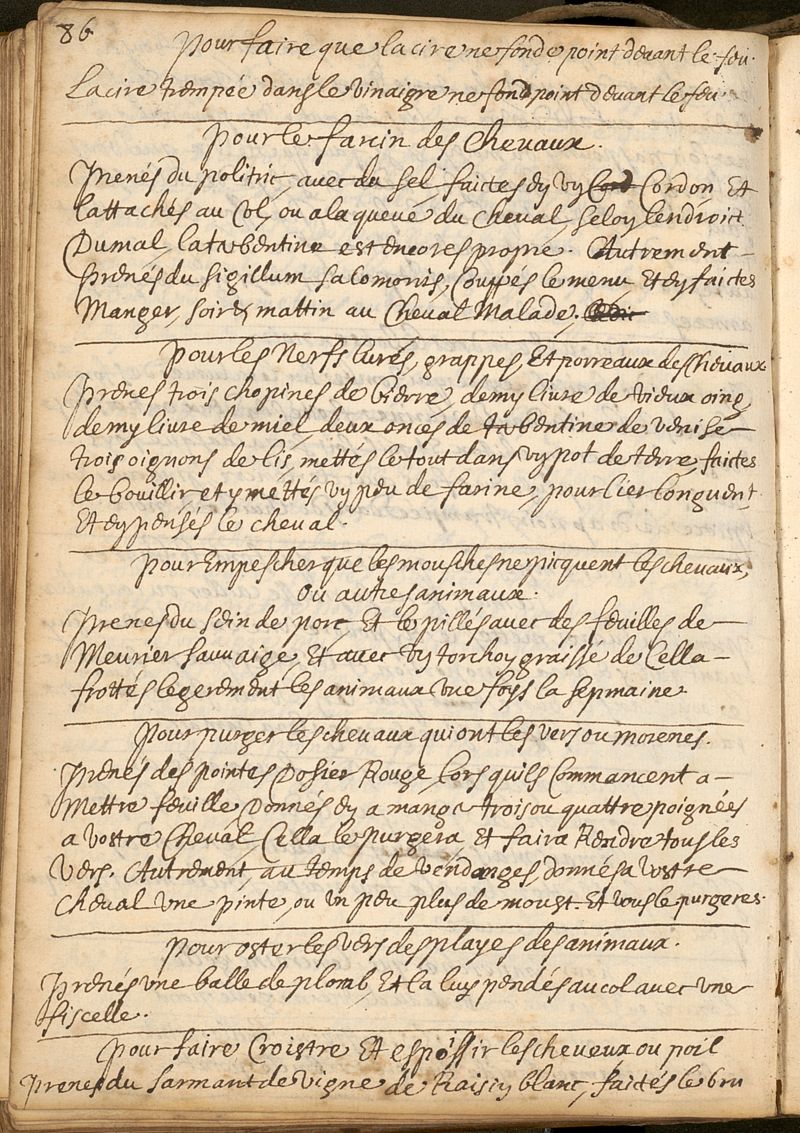 86
Pour faire que la cire ne fonde point deuant le feu.
La cire trempée dans le vinaigre ne fond point deuant le feu
Pour le farcin des Cheuaux.
Prenés du politric, auec du sel, faictes ey vy Cordon Et
lattachés au Col, ou a la queuë du Cheual, seloy lendroit
Du mal, la tarbentine est encores propre. Autrement
Prenés du sigillum salomonis, Couppés le menu Et ey faictes
Manger, soir & mattin au Cheual Malade.
Pour les Nerfs lurés, grappes, Et porreaux des Cheuaux
Prenes trois chopines de bierre, demy liure de vieux oing,
demy liure de miel, deux onces de tarbentine de venise
trois oignons de lis, mettés le tout dans vy pot de terre, faictes
le bouillir et y mettés vy peu de farine, pour lier longuent
Et ey pensés le cheual.
Pour Empescher que les mousches ne picquent les cheuaux,
Ou autres animaux.
Prenes du sein de porc, Et le pillés auec des feuilles de
Meurier sauuaige, Et auec vy torchoy graissé de Cella
frottés legerement les animaux vne foys la sepmaine.
Pour purger les cheuaux qui ont les vers ou morenes.
Prenés des pointes Dosier Rouge, lors quils Commancent a
Mettre feuille Donnés ey a manga trois ou quattre poignées
a vostre Cheual Cella le purgera Et faira Rendre tous les
vers. Autrement, au temps de vendanges, donnés a vostre
Cheual vne pinte, ou vn peu plus de moust. Et vous le purgeres.
Pour oster les vers des playes des animaux.
Prenés vne balle de plomb, Et la luy pendés au col auec vne
fiscelle.
Pour faire Croistre Et espoissir les cheueux ou poil
Prenes du sarmant de vigne de Raisiy blanc, faictés le bru